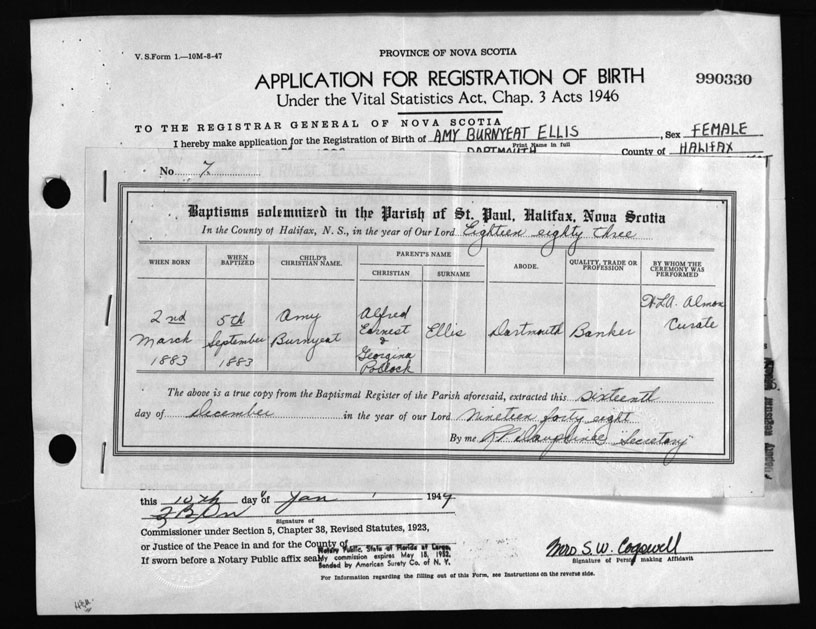 V. S. Form 1.—10M-8-47
PROVINCE OF NOVA SCOTIA
APPLICATION FOR REGISTRATION OF BIRTH
990330
Under the Vital Statistics Act, Chap. 3 Acts 1946
TO THE REGISTRAR GENERAL OF NOVA SCOTIA
I hereby make application for the Registration of Birth of AMY BURNYEAT ELLIS, Sex FEMALE
Print Name in full
DARTMOUTH County of HALIFAX
No. 7
Baptisms solemnized in the Parish of St. Paul, Halifax, Nova Scotia
In the County of Halifax, N. S., in the year of Our Lord Eighteen eighty three
WHEN BORN
WHEN BAPTIZED
CHILD'S CHRISTIAN NAME.
PARENT'S NAME
CHRISTIAN
SURNAME
ABODE.
QUALITY, TRADE OR PROFESSION
BY WHOM THE CEREMONY WAS PERFORMED
2nd March 1883
5th September 1883
Amy Burnyeat
Alfred Earnest & Georgina Pollock
Ellis
Dartmouth
Banker
H.L.A. Almon Curate
The above is a true copy from the Baptismal Register of the Parish aforesaid, extracted this sixteenth
day of December in the year of our Lord Nineteen forty eight
By me "Secretary"
this 10th day of Jan 1949
Signature of
Commissioner under Section 5, Chapter 38, Revised Statutes, 1923,
or Justice of the Peace in and for the County of
Notary Public, State of Florida at Large,
If sworn before a Notary Public affix seal
My commission expires May 18, 1952.
Bonded by American Surety Co. of N. Y.
Mrs. S. W. Cogswell
Signature of Person making Affidavit
For Information regarding the filling out of this Form, see Instructions on the reverse side.